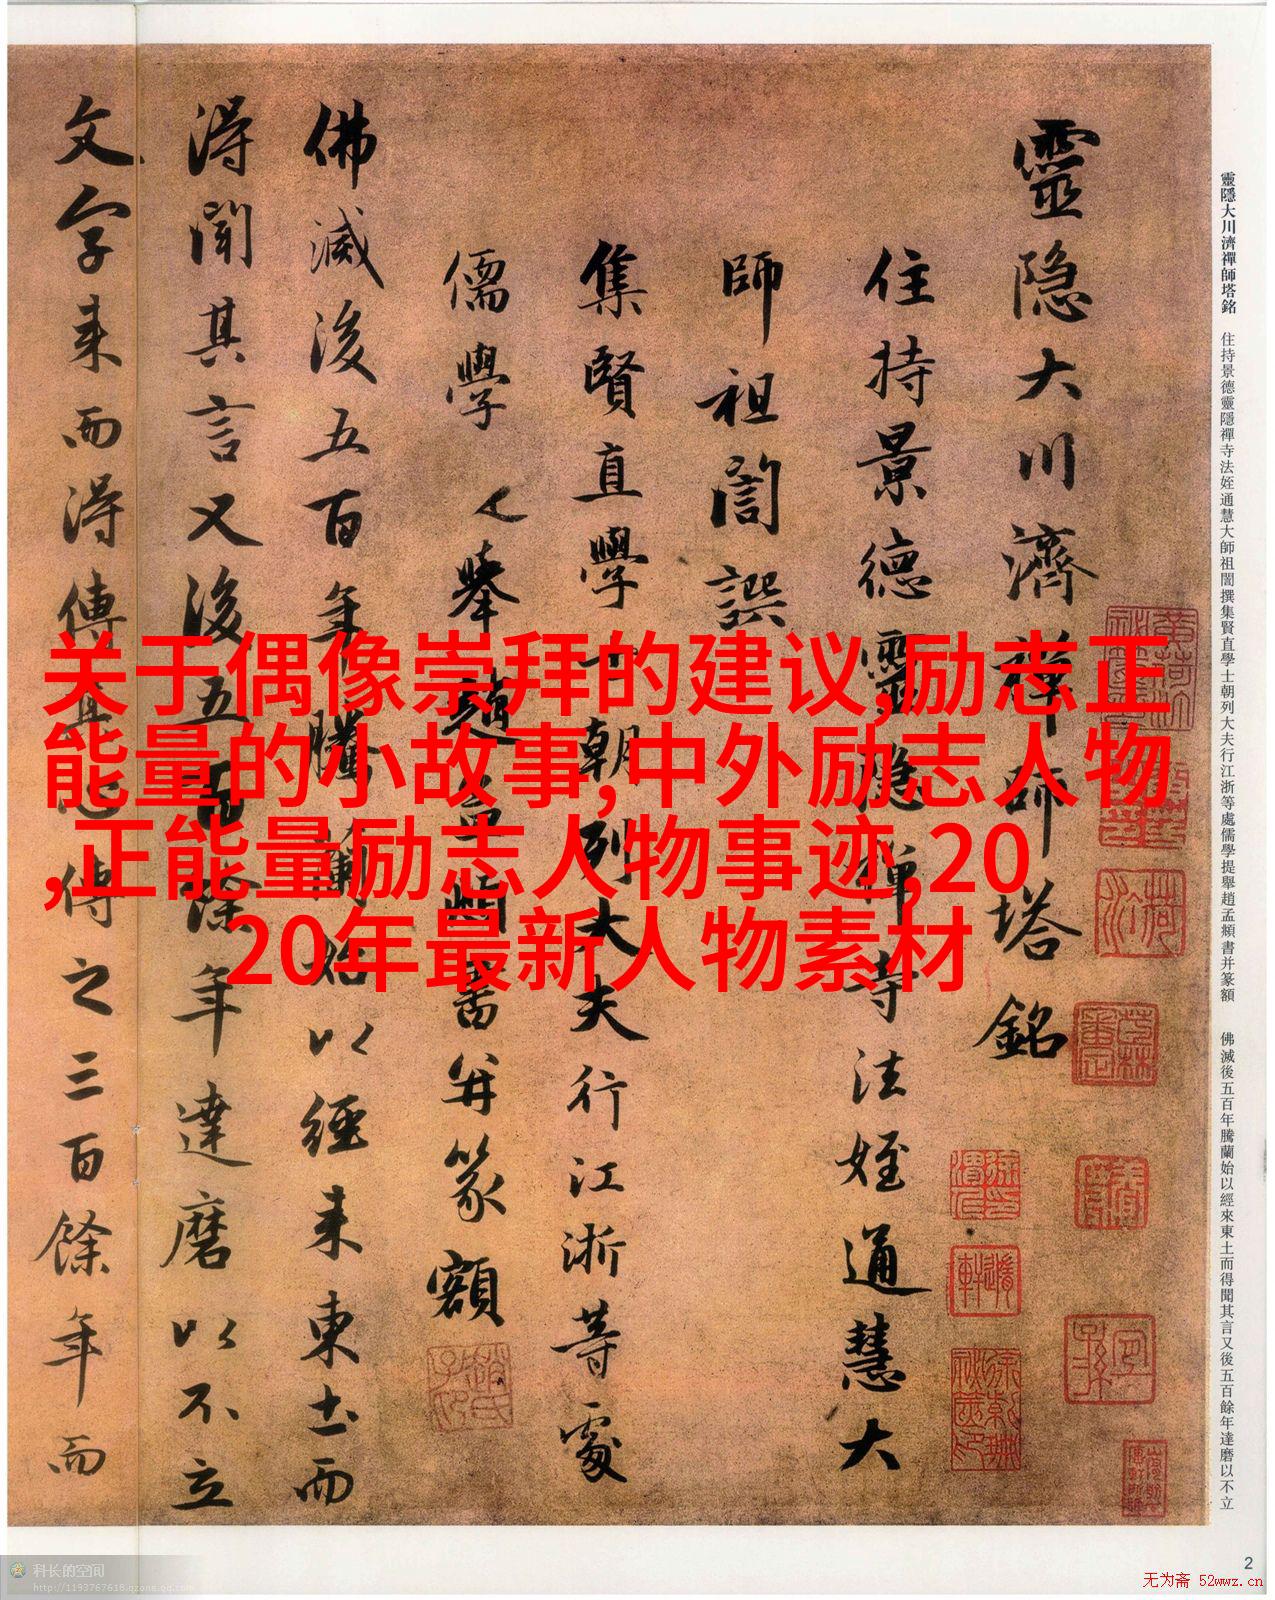 靈隱大川濟禪師塔銘
住持景德靈隱禪寺法姪通慧大
師祖誾譔
集賢直學士朝列大夫行江浙等處
儒學提舉趙孟頫書并篆額
佛滅後五百年騰蘭始以經來東土而
得聞其言又後五百餘年達磨以不立
文字来而得傳其心傳之三百餘年而
关于偶像崇拜的建议,励志正
能量的小故事,中外励志人物
,正能量励志人物事迹,20
20年最新人物素材
靈隱大川濟禪師塔銘 住持景德靈隱禪寺法姪通慧大師祖誾撰集賢直學士朝列大夫行江浙等處儒學提舉趙孟頫書并篆額 佛滅後五百年騰蘭始以經來東土而得聞其言又後五百餘年達磨以不立
2
科长的空间
http://1193767618.qzone.qq.com
无为斋 52wwz.cn